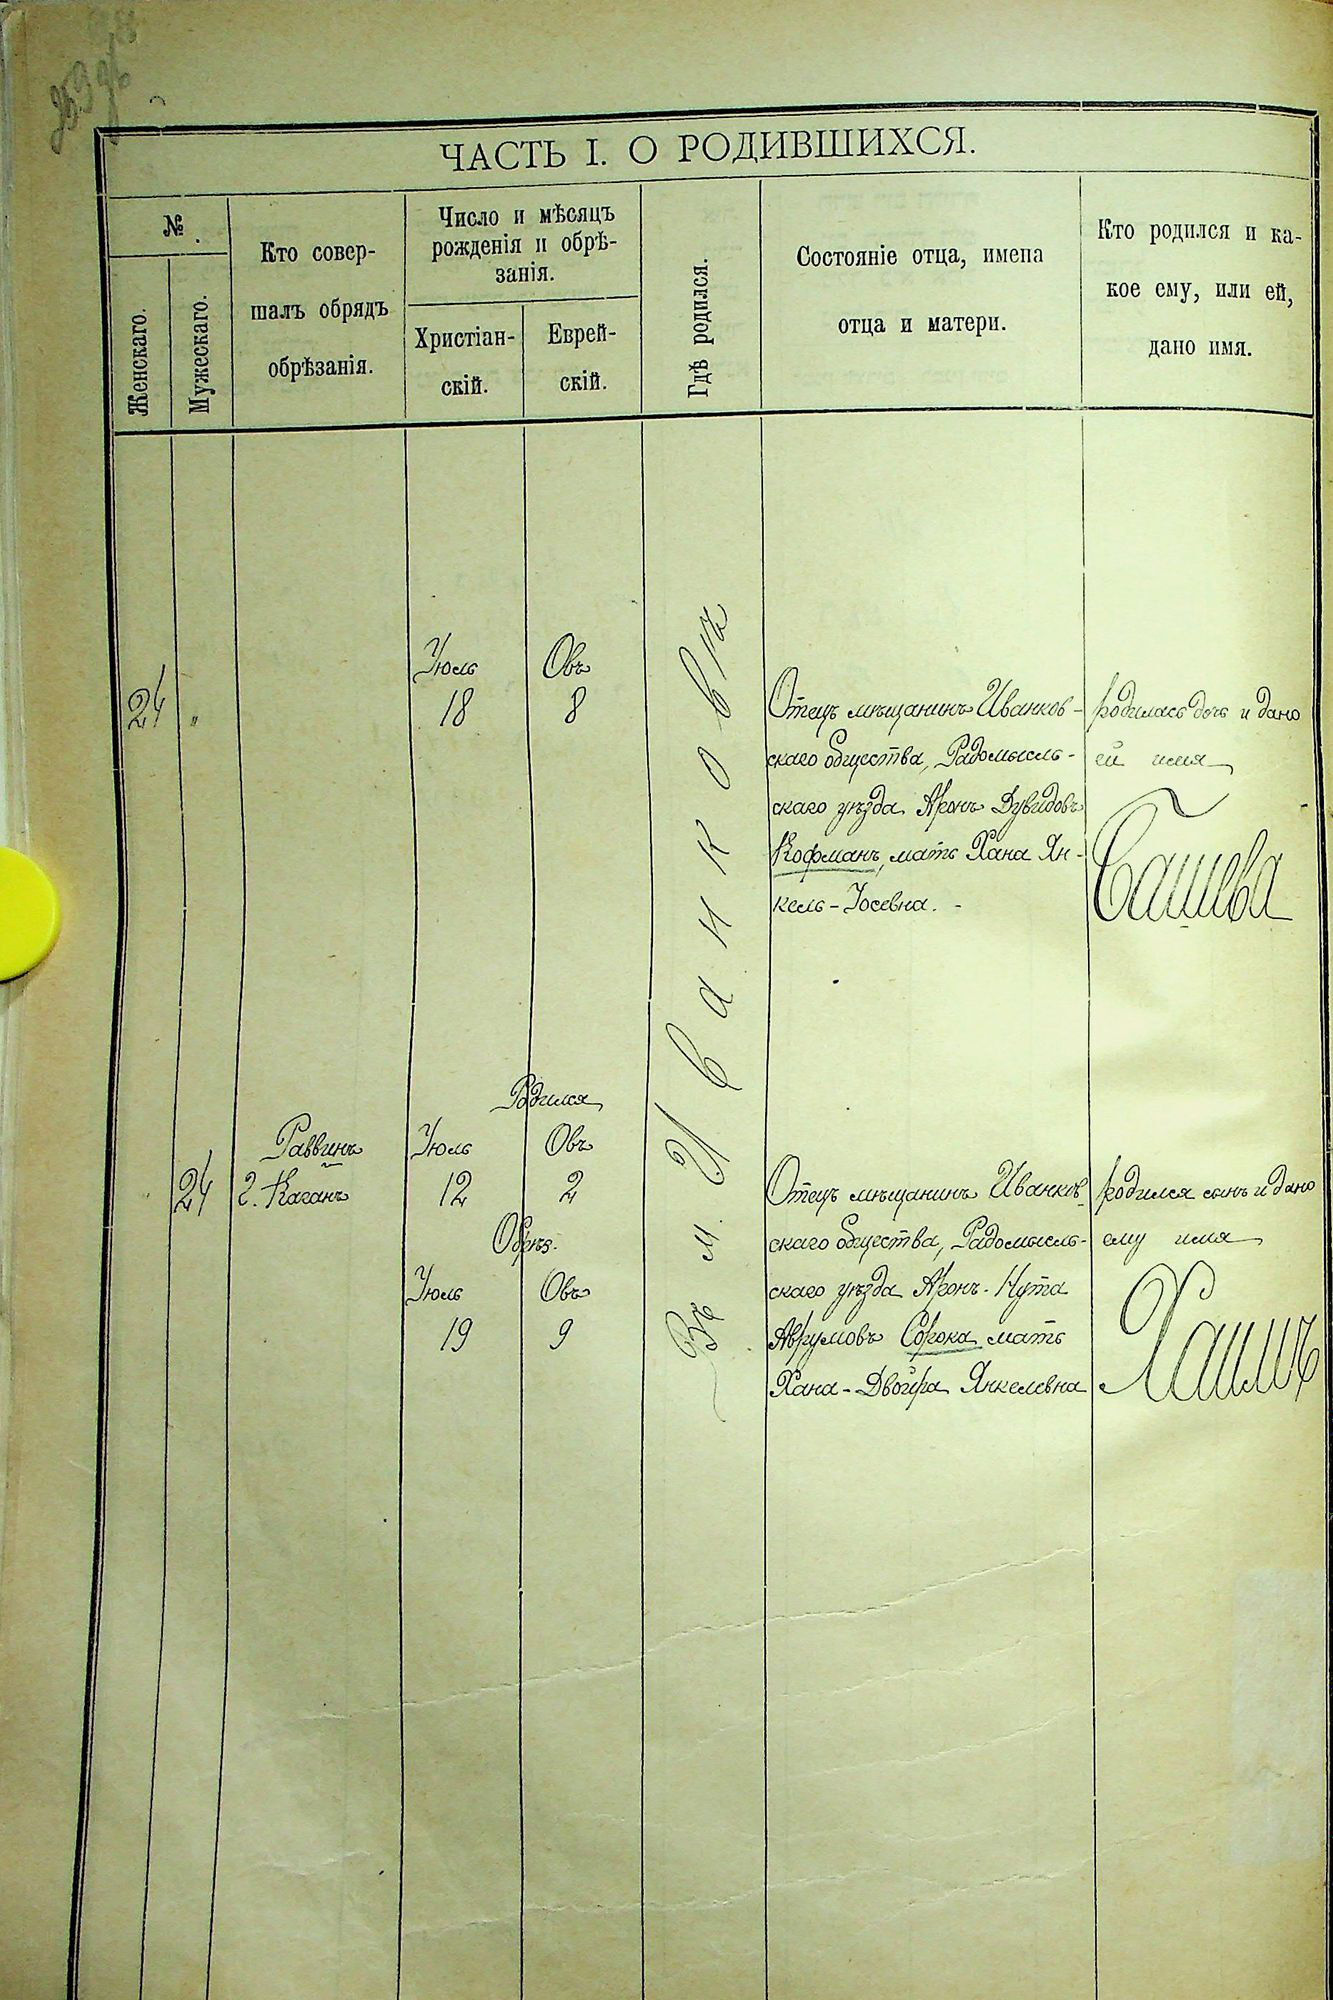 ЧАСТЬ I. О РОДИВШИХСЯ.
№
Женскаго.
Мужескаго.
Кто совер-
шалъ обрядъ
обрѣзанія.
Число и мѣсяцъ
рожденія и обрѣ-
занія.
Христіан-
скій.
Еврей-
скій.
Гдѣ родился.
Состояніе отца, имена
отца и матери.
Кто родился и ка-
кое ему, или ей,
дано имя.
Въ м. Иванковѣ
24 "
Іюль Овъ
18 8
Отецъ мѣщанинъ Иванков-
скаго общества, Радомысль-
скаго уѣзда Аронъ Дувидовъ
Кофманъ, мать Хана Ян-
кель-Іосевна. -
родилась дочь и дано
ей имя
Башева
24
Раввинъ
г. Каганъ
Родился
Іюль Овъ
12 2
Обрѣз.
Іюль Овъ
19 9
Отецъ мѣщанинъ Иванков-
скаго общества, Радомысль-
скаго уѣзда Аронъ-Нута
Аврумовъ Сорока мать
Хана-Двойра Янкелевна
родился сынъ и дано
ему имя
Хаимъ